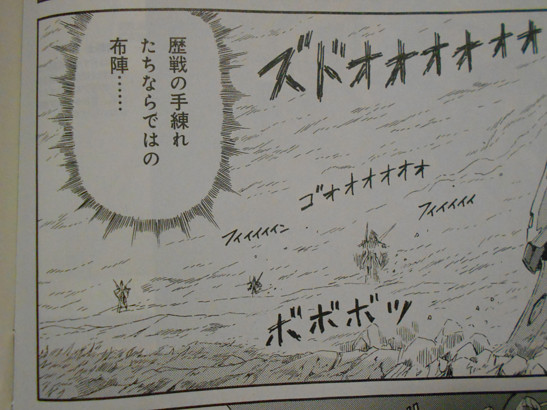 ズドオオオオオオ
歴戦の手練れ
たちならではの
布陣……
ゴオオオオオオ
フィイイイイ
フィイイイイン
ボボボッ